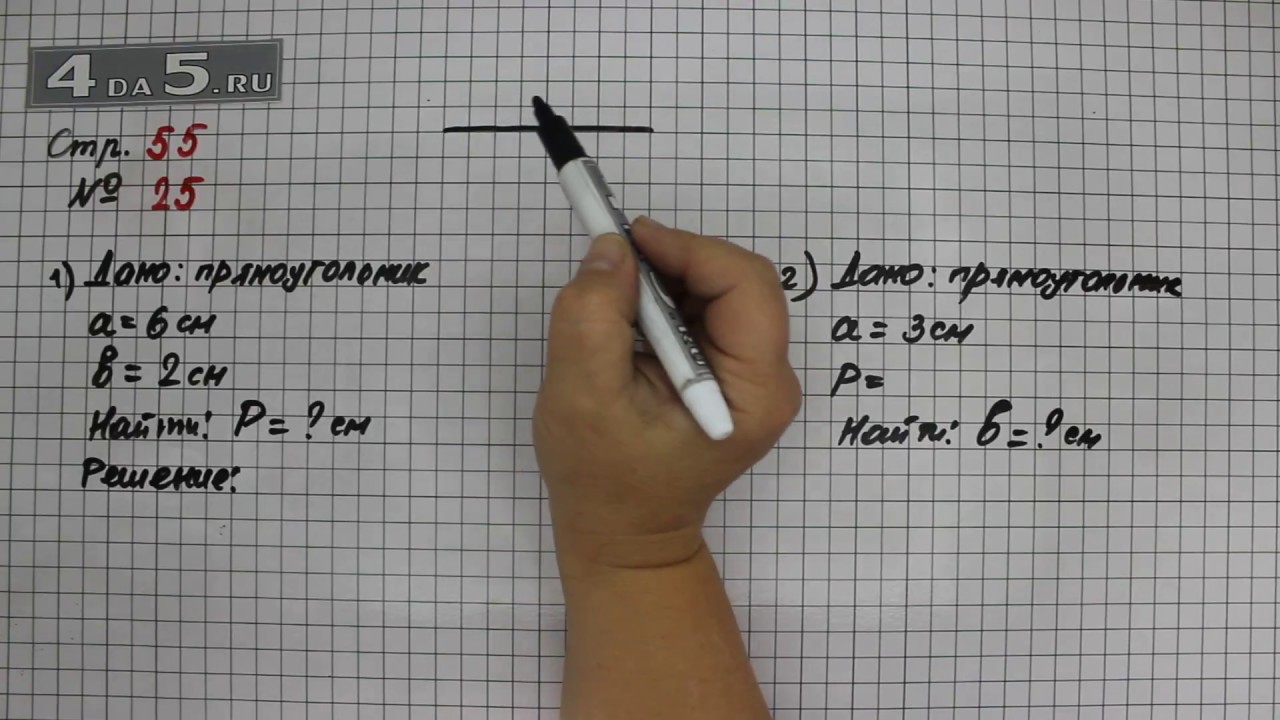 4 DA 5.RU
Стр. 55
№ 25
1) Дано: прямоугольник
a = 6 см
в = 2 см
Найти: P = ? см
Решение:
2) Дано: прямоугольник
a = 3 см
P =
Найти: в = ? см